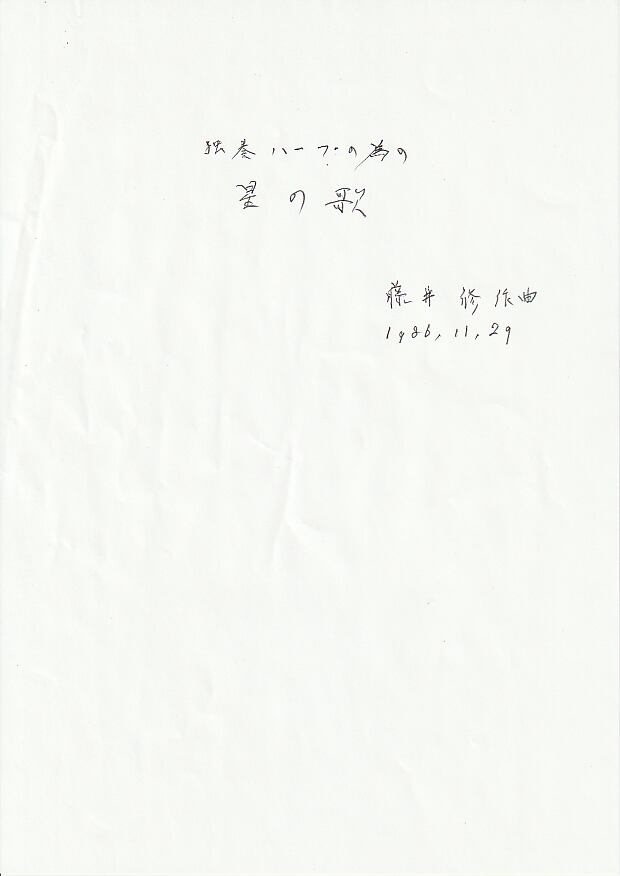 独奏ハープの為の
星の歌
藤井 修 作曲
1986, 11, 29